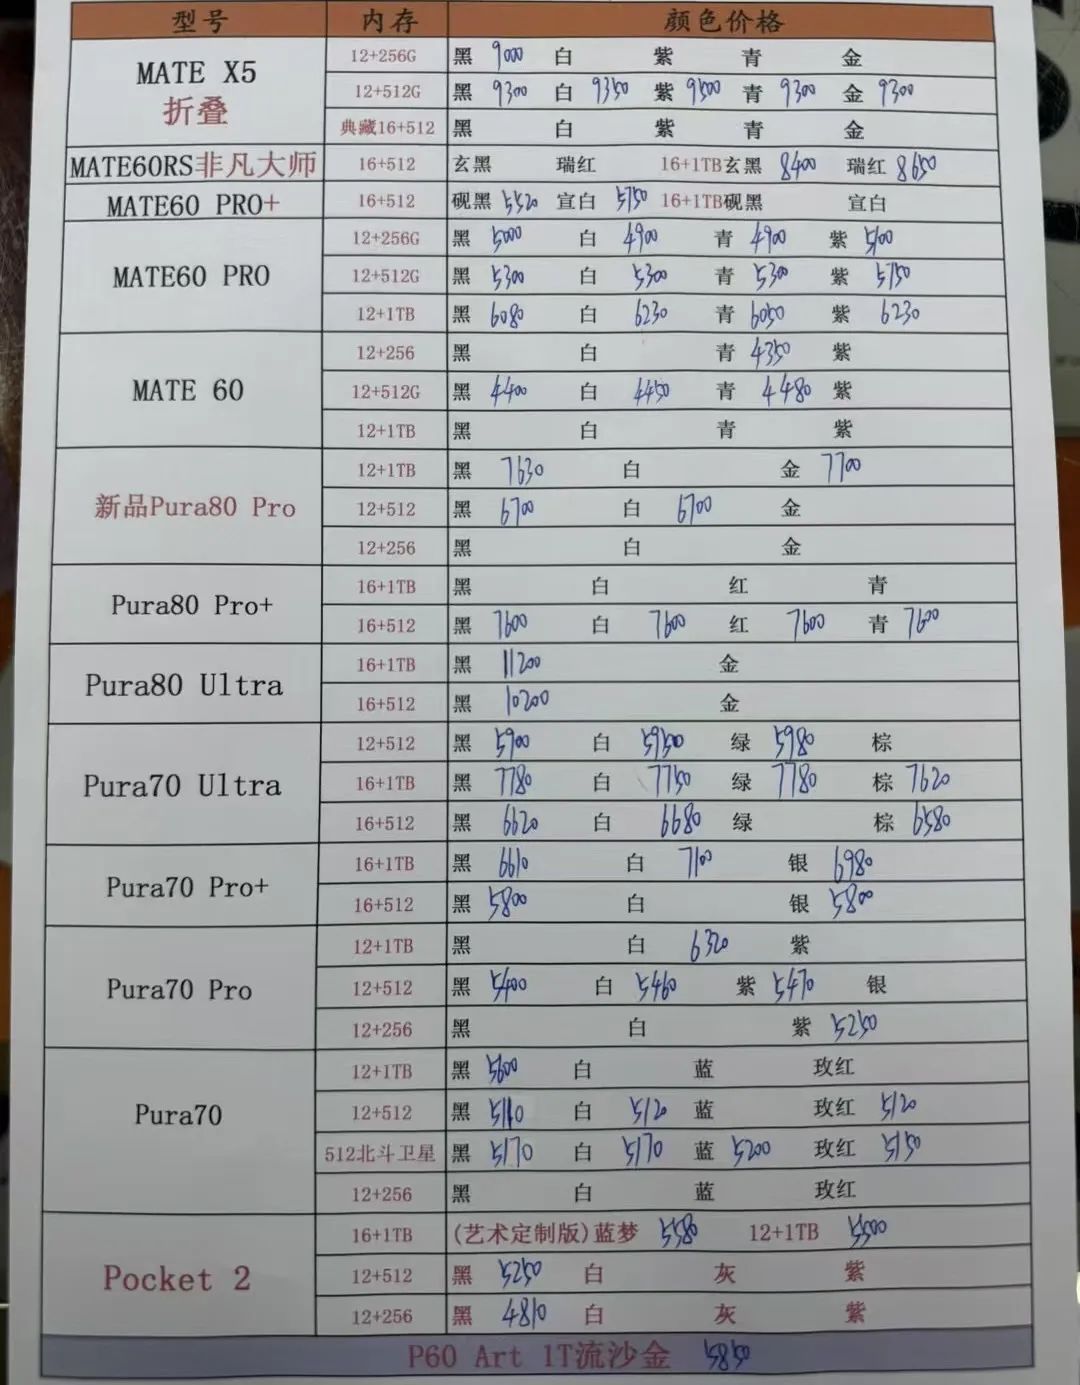 型号 内存 颜色价格
MATE X5 折叠 12+256G 黑 9000 白 紫 青 金
12+512G 黑 9300 白 9350 紫 9500 青 9300 金 9300
典藏16+512 黑 白 紫 青 金
MATE60RS非凡大师 16+512 玄黑 瑞红 16+1TB玄黑 8400 瑞红 8650
MATE60 PRO+ 16+512 砚黑 5520 宣白 5750 16+1TB砚黑 宣白
MATE60 PRO 12+256G 黑 5000 白 4900 青 4900 紫 5100
12+512G 黑 5300 白 5300 青 5300 紫 5750
12+1TB 黑 6080 白 6230 青 6050 紫 6230
MATE 60 12+256 黑 白 青 4350 紫
12+512G 黑 4400 白 4450 青 4480 紫
12+1TB 黑 白 青 紫
新品Pura80 Pro 12+1TB 黑 7630 白 金 7700
12+512 黑 6700 白 6700 金
12+256 黑 白 金
Pura80 Pro+ 16+1TB 黑 白 红 青
16+512 黑 7600 白 7600 红 7600 青 7600
Pura80 Ultra 16+1TB 黑 11200 金
16+512 黑 10200 金
Pura70 Ultra 12+512 黑 5900 白 绿 5980 棕
16+1TB 黑 7780 白 7750 绿 7780 棕 7620
16+512 黑 6620 白 6680 绿 棕 6580
Pura70 Pro+ 16+1TB 黑 6610 白 7100 银 6980
16+512 黑 5800 白 银 5800
Pura70 Pro 12+1TB 黑 白 6320 紫
12+512 黑 5400 白 5460 紫 5470 银
12+256 黑 白 紫 5250
Pura70 12+1TB 黑 5600 白 蓝 玫红
12+512 黑 5110 白 5120 蓝 玫红 5120
512北斗卫星 黑 5170 白 5170 蓝 5200 玫红 5150
12+256 黑 白 蓝 玫红
Pocket 2 16+1TB (艺术定制版)蓝梦 5580 12+1TB 5500
12+512 黑 5250 白 灰 紫
12+256 黑 4810 白 灰 紫
P60 Art 1T流沙金 5850